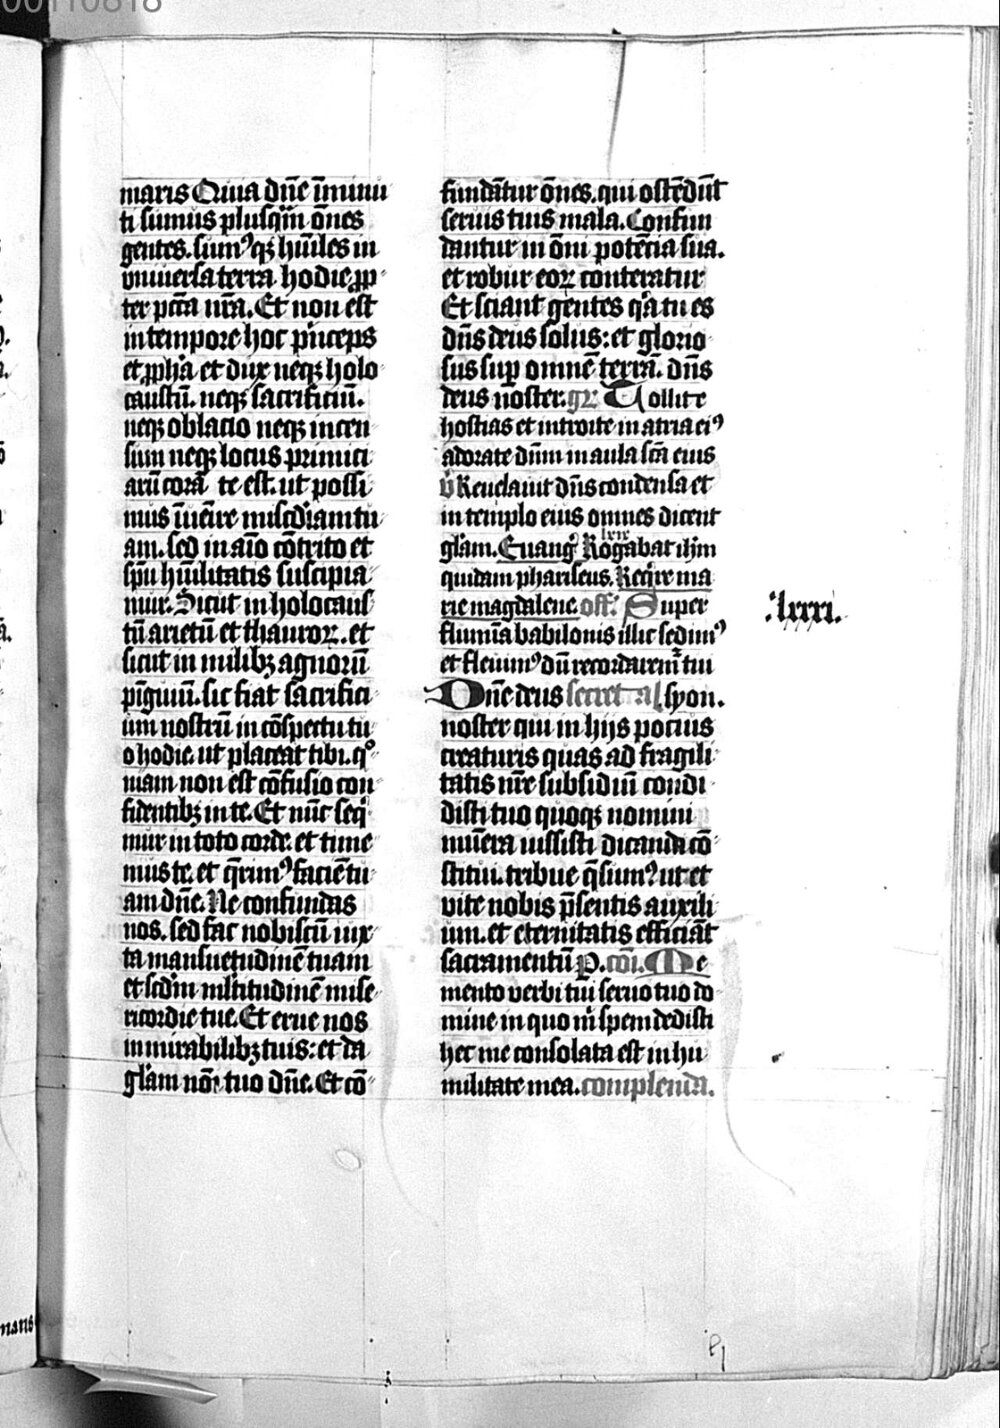 maris Quia dn̄e īminu
ti sumus plusqm̄ om̄es
gentes. sumꝰqꝫ hūiles in
vniuersa terra hodie ꝓp
ter pctā nr̄a. Et non est
in tempore hoc pͥnceps
et ꝓph̄a et dux neqꝫ holo
caustū. neqꝫ sacrificiū.
neqꝫ oblacio neqꝫ incen
sum neqꝫ locus primici
arū corā te est. ut possi
mus īuēire mis̄cdiam tu
am. sed in aīo cōtrito et
spū hūilitatis suscipia
mur. Sicut in holocaus
tū arietū et thauroꝝ. et
sicut in milibꝫ agnorū
pīguiū. sic fiat sacrifici
um nostrū in cōspectu tu
o hodie. ut placeat tibi. qͦ
niam non est cōfusio con
fidentibꝫ in te. Et nūc seqͥ
mur in toto corde. et time
mus te. et q̄rimꝰ faciē tu
am dn̄e. Ne confundas
nos. sed fac nobiscū iux
ta mansuetudinē tuam
et scd̄m mltitudinē mise
ricordie tue. Et erue nos
in mirabilibꝫ tuis: et da
glām nōi tuo dn̄e. Et cō
fundātur om̄es. qui ostēdūt
seruis tuis mala. Confun
dantur in om̄i potēcia sua.
et robur eoꝝ conteratur
Et sciant gentes qͥa tu es
dn̄s deus solus: et glorio
sus sup omnē terrā. dn̄s
deus noster. gͬ Tollite
hostias et introite in atria eiꝰ
adorate dn̄m in aula scā eius
v̊ Reuelauit dn̄s condensa et
in templo eius omnes dicent
lxix
glām. Euangͫ Rogabat ihm̄
quidam phariseus. Reqͥre ma
rie magdalene off. Super
.lxxxi.
flumīa babilonis illic sedimꝰ
et fleuimꝰ dū recordarem̄ tui
Dn̄e deus secret al syon.
noster qui in hijs pocius
creaturis quas ad fragili
tatis nr̄e subsidiū condi
disti tuo quoqꝫ nomini
mun̄era iussisti dicanda cō
stitui. tribue q̄sumꝰ ut et
vite nobis p̄sentis auxili
um. et eternitatis efficiāt
sacramentū P. cōi. Me
mento verbi tui seruo tuo do
mine in quo mͥ spem dedisti
hec me consolata est in hu
militate mea. complenda.